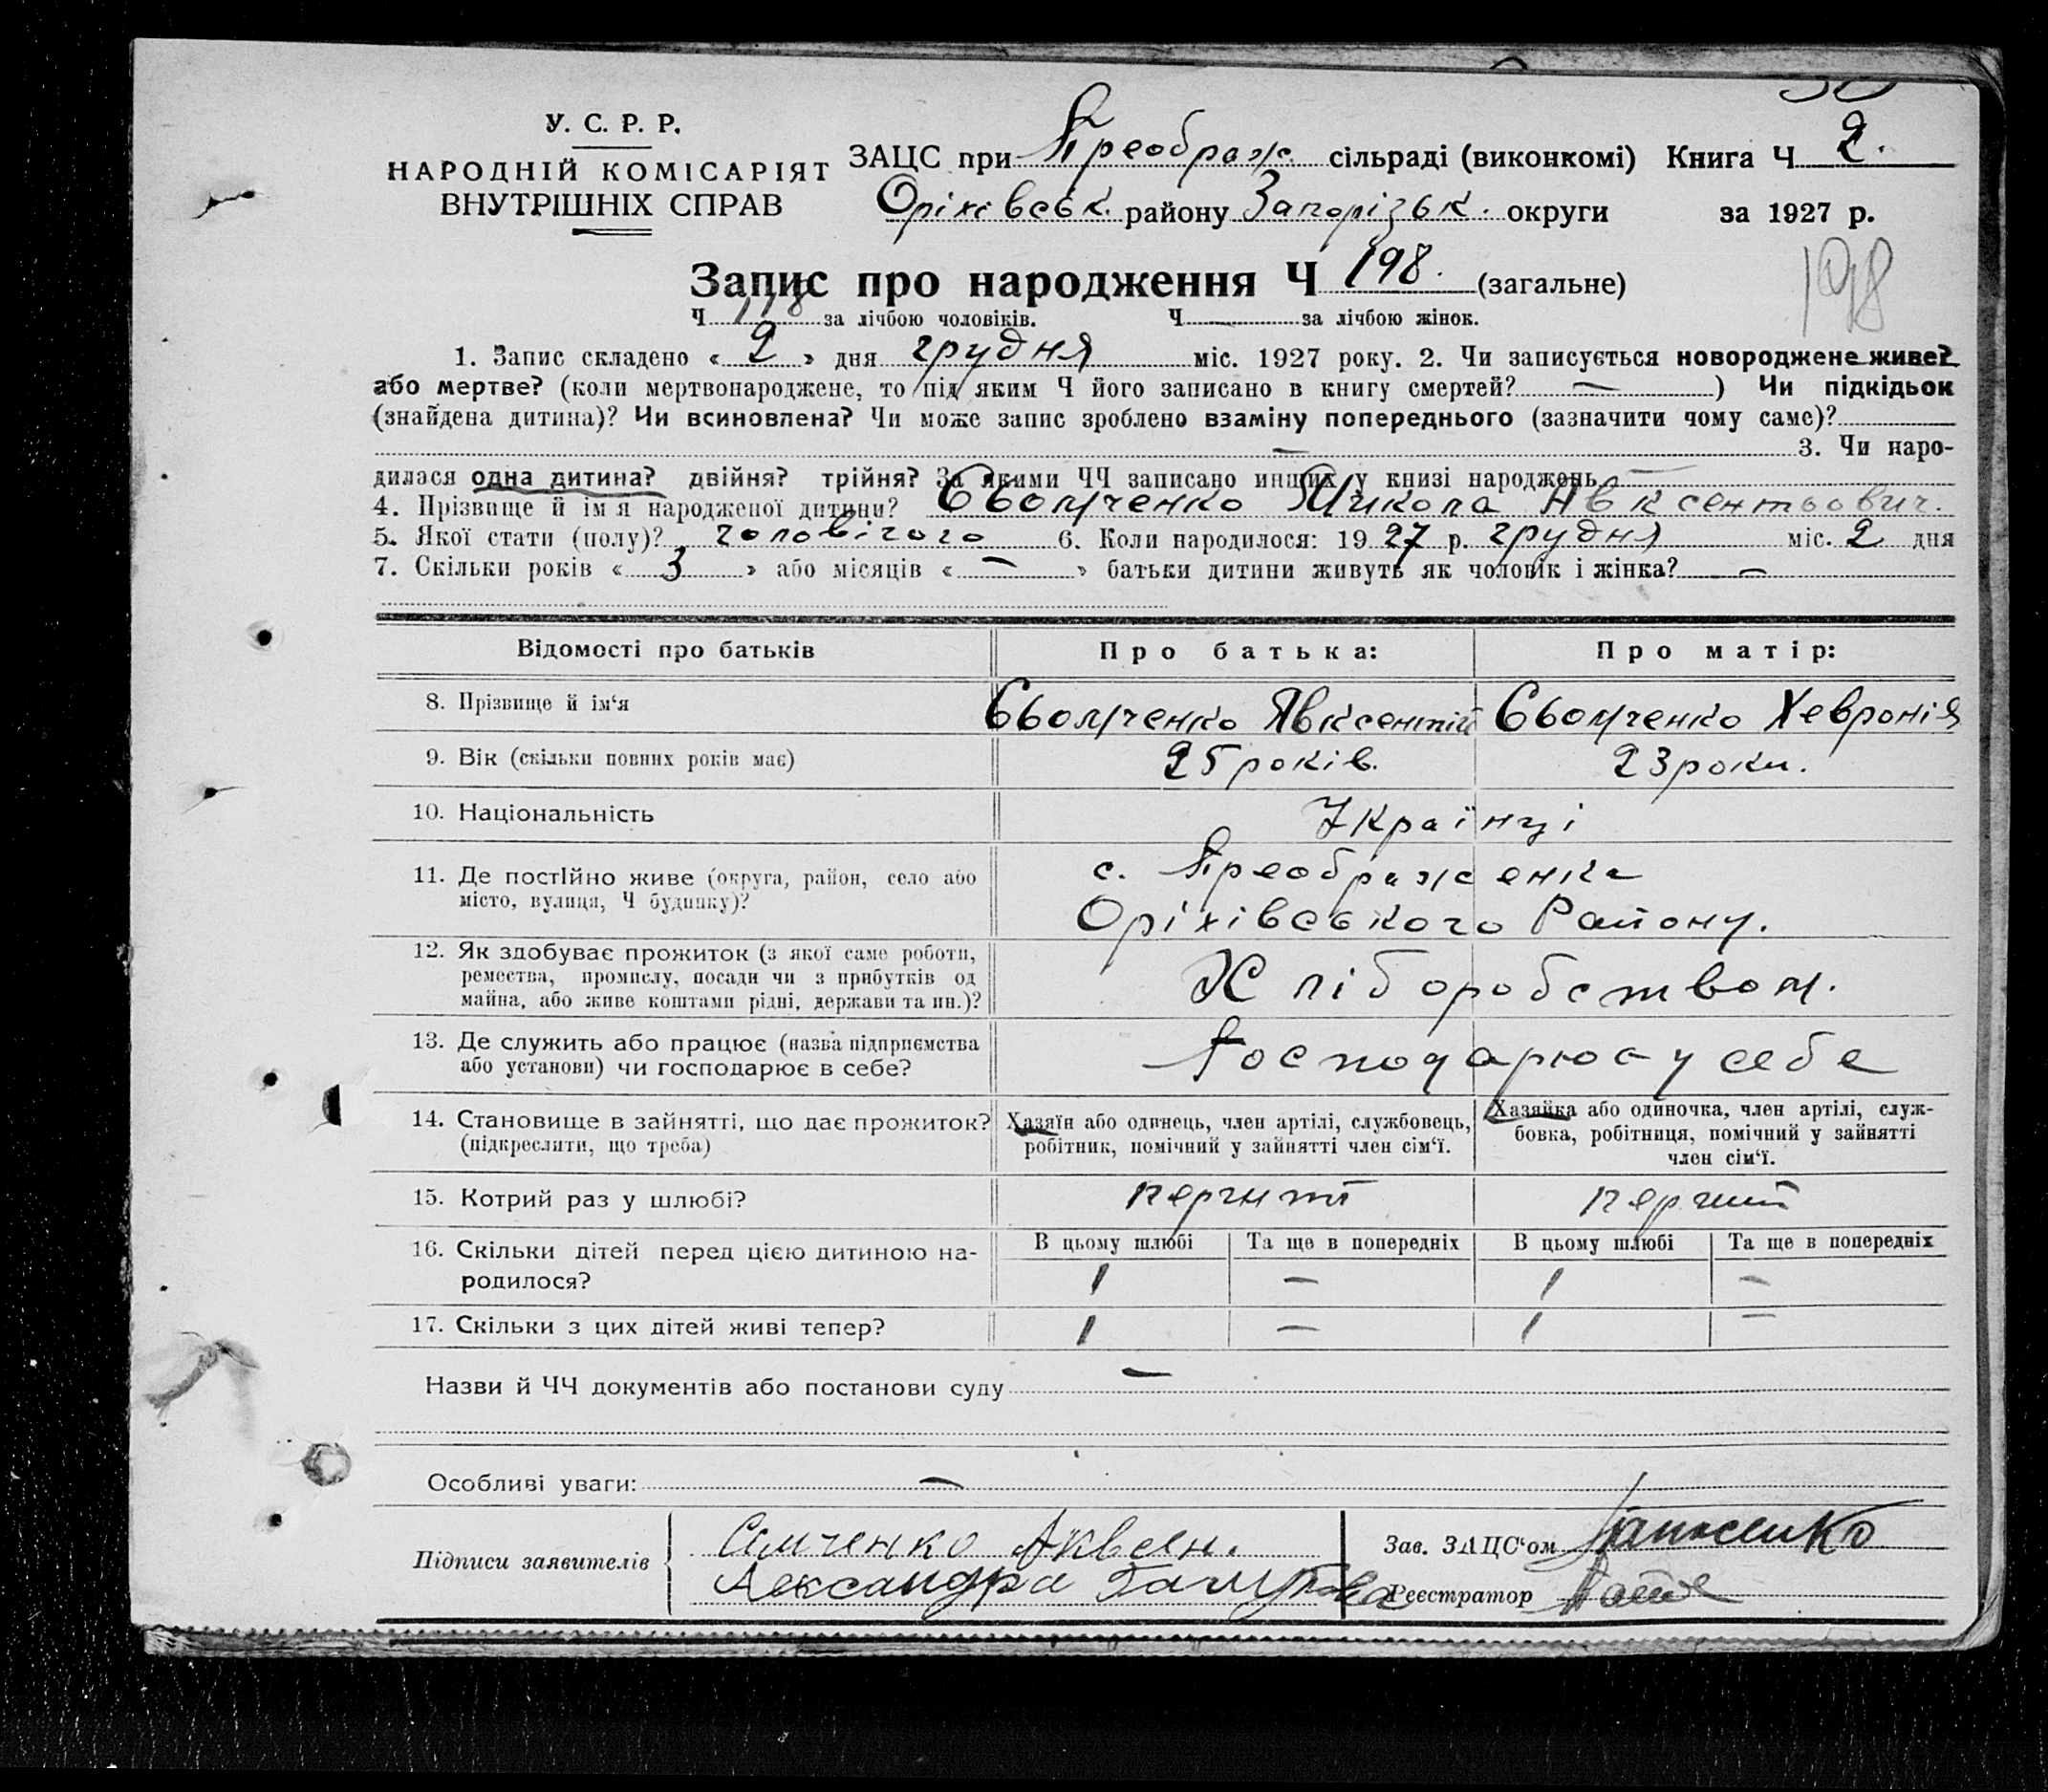 У. С. Р. Р.
НАРОДНІЙ КОМІСАРІЯТ
ВНУТРІШНІХ СПРАВ
ЗАЦС при Преображ. сільраді (виконкомі) Книга Ч 2.
Оріхівськ. району Запорізьк. округи за 1927 р.
Запис про народження Ч 198. (загальне)
198
Ч 118 за лічбою чоловіків. Ч за лічбою жінок.
1. Запис складено « 2 » дня грудня міс. 1927 року. 2. Чи записується новороджене живе?
або мертве? (коли мертвонароджене, то під яким Ч його записано в книгу смертей? — ) Чи підкідьок
(знайдена дитина)? Чи всиновлена? Чи може запис зроблено взаміну попереднього (зазначити чому саме)?
— 3. Чи наро-
дилася одна дитина? двійня? трійня? За якими ЧЧ записано инших у книзі народжень —
4. Прізвище й ім'я народженої дитини? Микола Авксентьович.
5. Якої стати (полу)? чоловічого 6. Коли народилося: 1927 р. грудня міс. 2 дня
7. Скільки років « 3 » або місяців « — » батьки дитини живуть як чоловік і жінка? —
Відомості про батьків Про батька: Про матір:
8. Прізвище й ім'я Явксентій Хевронія
9. Вік (скільки повних років має) 25 років. 23 роки.
10. Національність Українці
11. Де постійно живе (округа, район, село або
місто, вулиця, Ч будинку)?
с. Преображенка
Оріхівського Району.
12. Як здобуває прожиток (з якої саме роботи,
ремества, промислу, посади чи з прибутків од
майна, або живе коштами рідні, держави та ин.)?
Хліборобством.
13. Де служить або працює (назва підприємства
або установи) чи господарює в себе?
Господарює у себе
14. Становище в зайнятті, що дає прожиток?
(підкреслити, що треба)
Хазяїн або одинець, член артілі, службовець,
робітник, помічний у зайнятті член сім'ї.
Хазяйка або одиночка, член артілі, служ-
бовка, робітниця, помічний у зайнятті
член сім'ї.
15. Котрий раз у шлюбі? перший перший
16. Скільки дітей перед цією дитиною на-
родилося?
В цьому шлюбі Та ще в попередніх В цьому шлюбі Та ще в попередніх
1 — 1 —
17. Скільки з цих дітей живі тепер? 1 — 1 —
Назви й ЧЧ документів або постанови суду —
Особливі уваги: —
Підписи заявителів
Александра
Зав. ЗАЦС'ом
Реєстратор